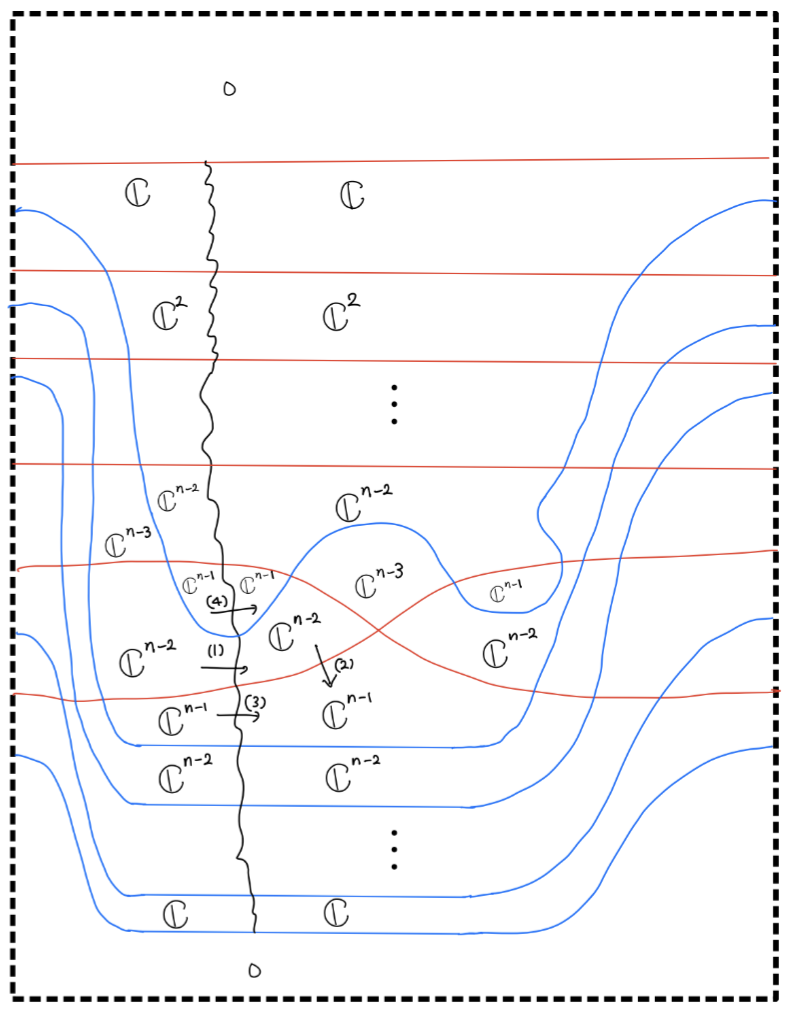 0
ℂ ℂ
ℂ² ℂ²
⋮
ℂⁿ⁻² ℂⁿ⁻²
ℂⁿ⁻³
ℂⁿ⁻¹ ℂⁿ⁻¹ ℂⁿ⁻³ ℂⁿ⁻¹
(4)
ℂⁿ⁻² (1) ℂⁿ⁻² (2) ℂⁿ⁻²
ℂⁿ⁻¹ (3) ℂⁿ⁻¹
ℂⁿ⁻² ℂⁿ⁻²
⋮
ℂ ℂ
0